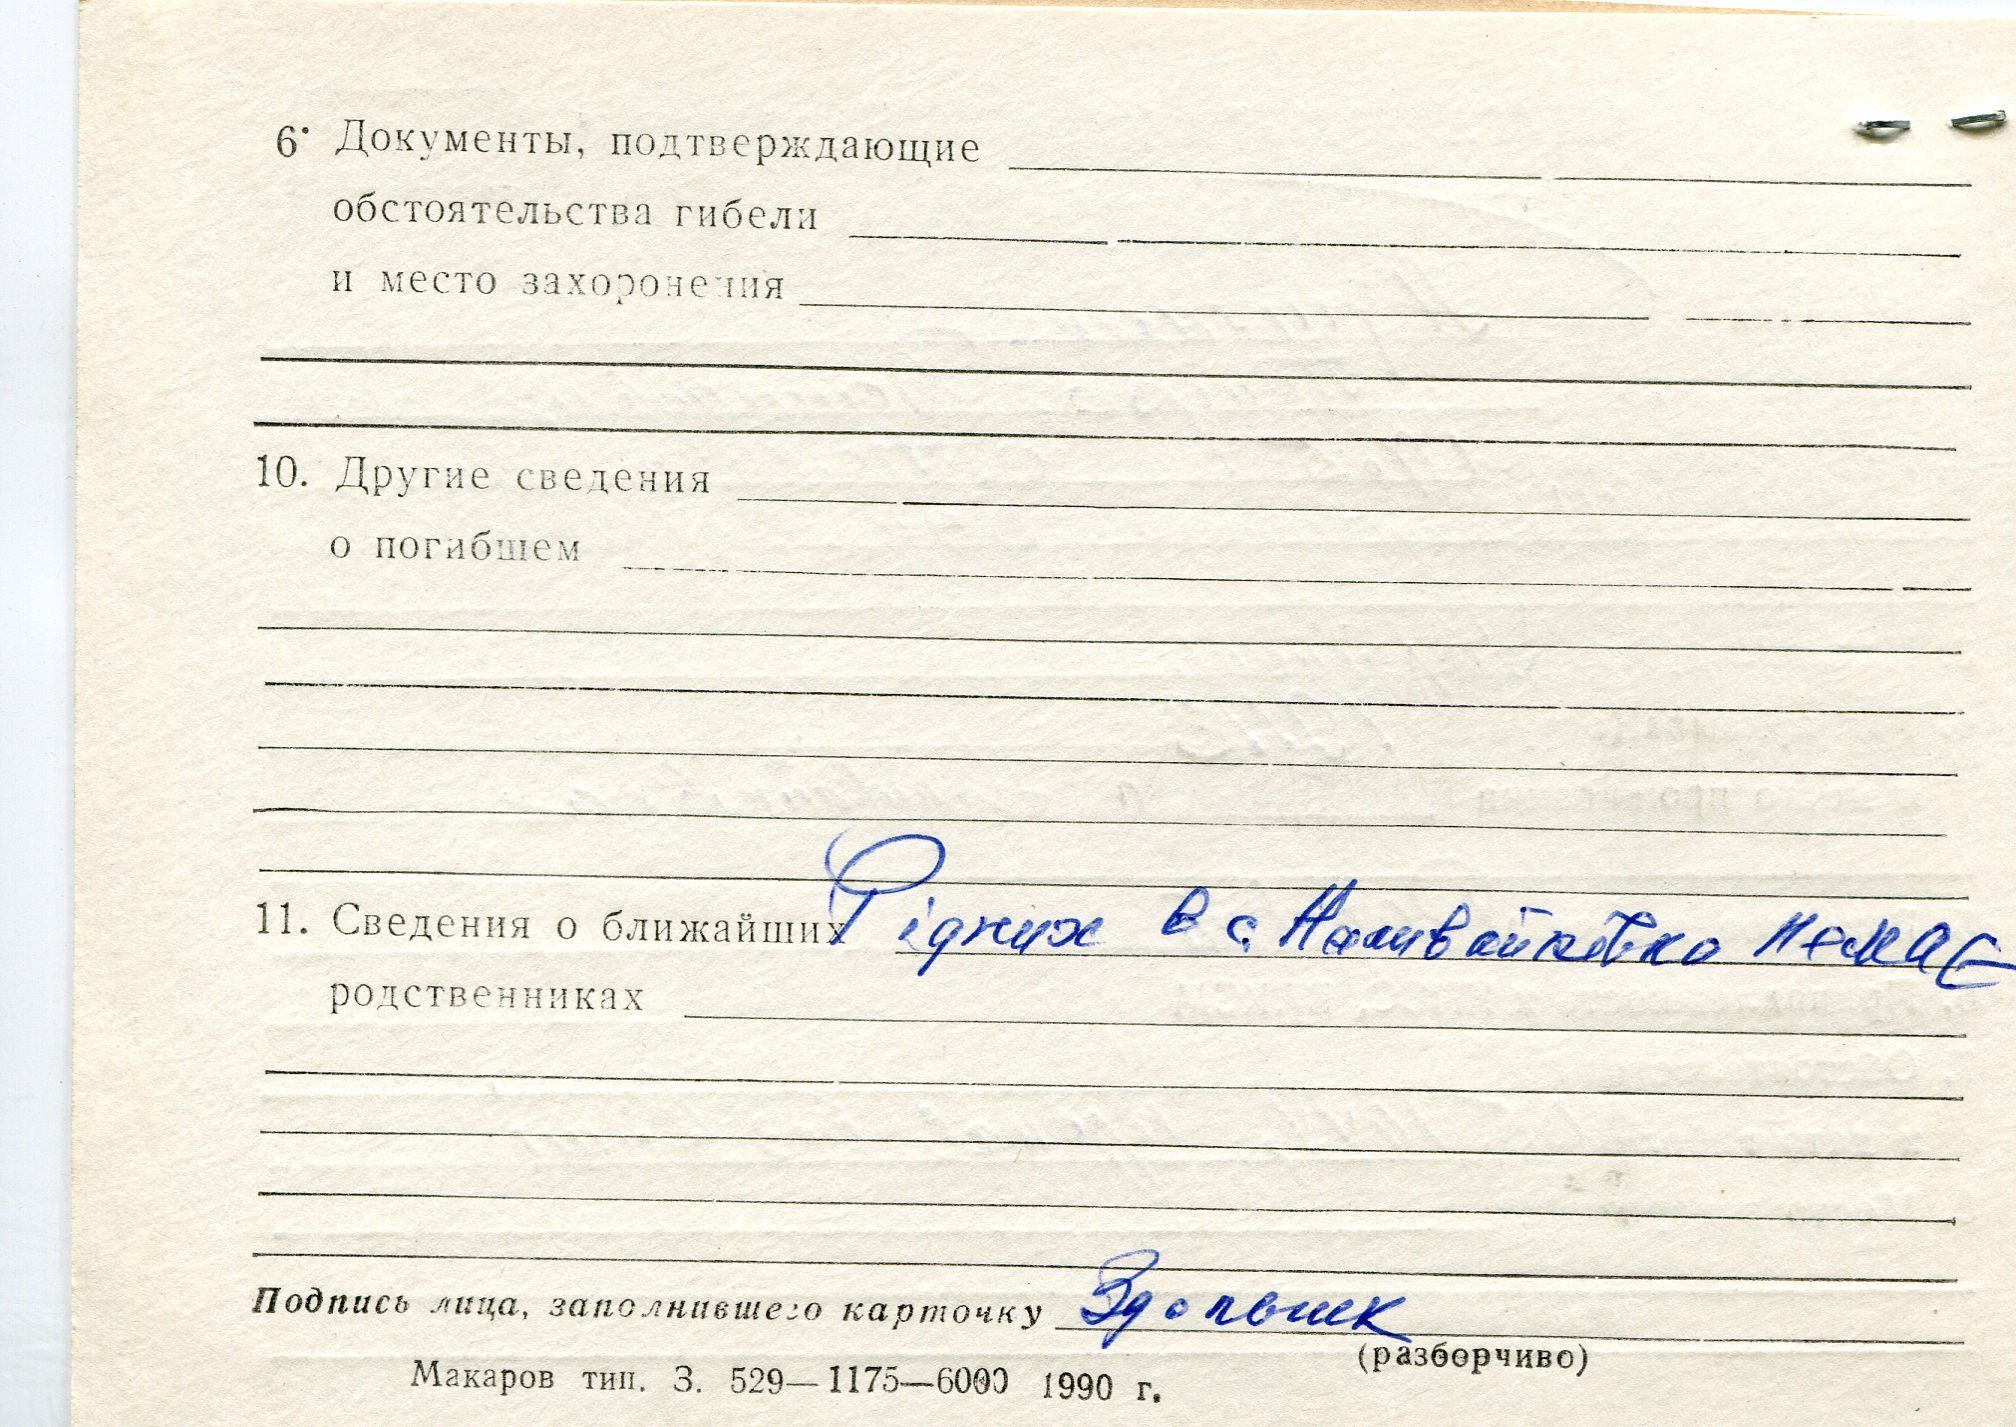 6. Документы, подтверждающие
обстоятельства гибели
и место захоронения
10. Другие сведения
о погибшем
11. Сведения о ближайших Рідних в с. Наливайківка немає
родственниках
Подпись лица, заполнившего карточку
(разборчиво)
Макаров тип. З. 529—1175—6000 1990 г.